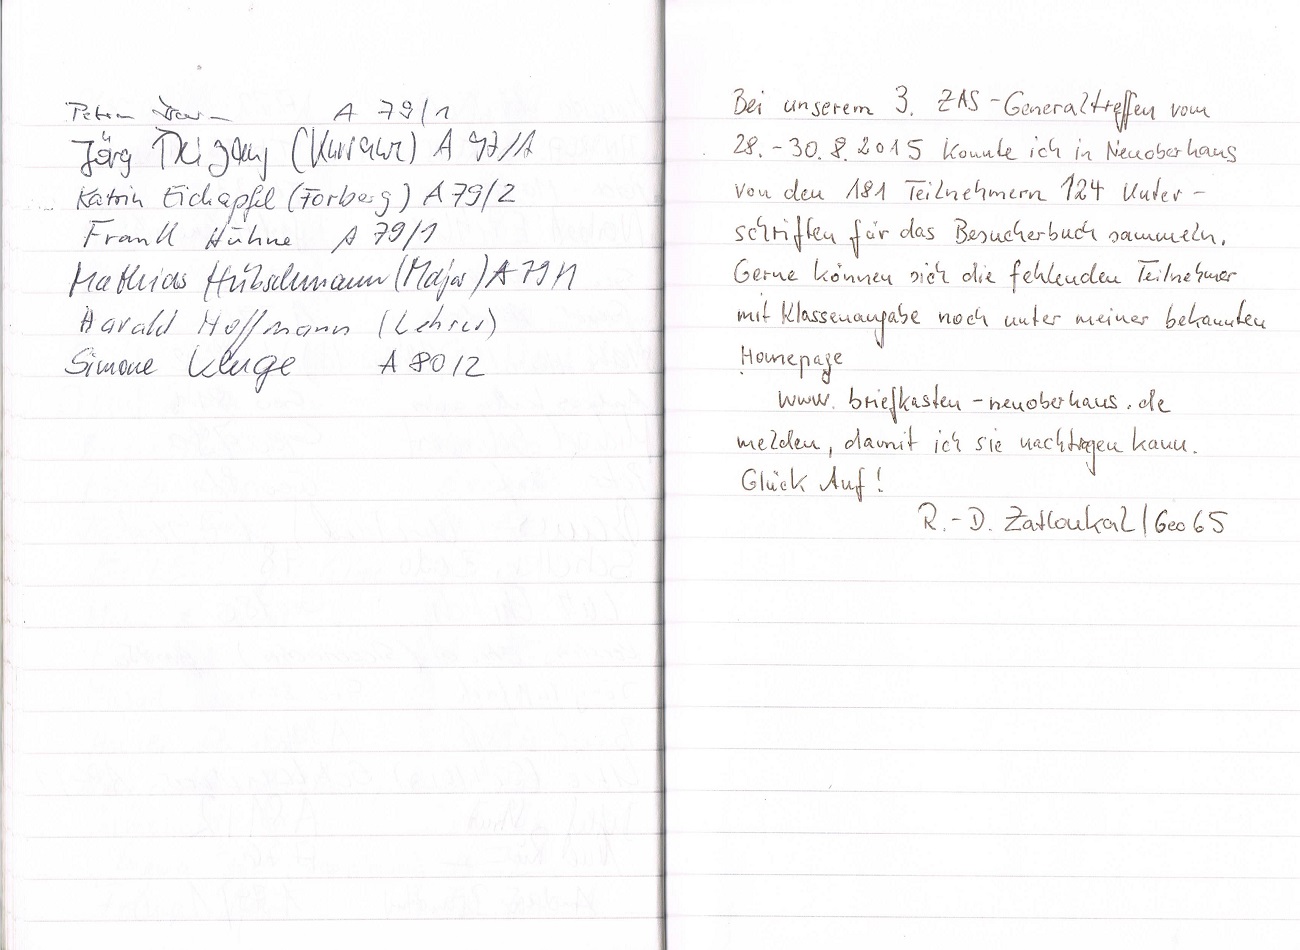 A 79/1
Jörg (Kurschur) A 97/1
Katrin Eichapfel (Forberg) A 79/2
Frank Hühne A 79/1
Mathias Hübschmann (Major) A 79/1
Harald Hoffmann (Lehrer)
Simone Kluge A 80/2
Bei unserem 3. ZAS-Generaltreffen vom
28.-30.8.2015 konnte ich in Neuoberhaus
von den 181 Teilnehmern 124 Unter-
schriften für das Besucherbuch sammeln.
Gerne können sich die fehlenden Teilnehmer
mit Klassenangabe noch unter meiner bekannten
Homepage
www.briefkasten-neuoberhaus.de
melden, damit ich sie nachtragen kann.
Glück Auf!
R.-D. Zatloukal/Geo 65